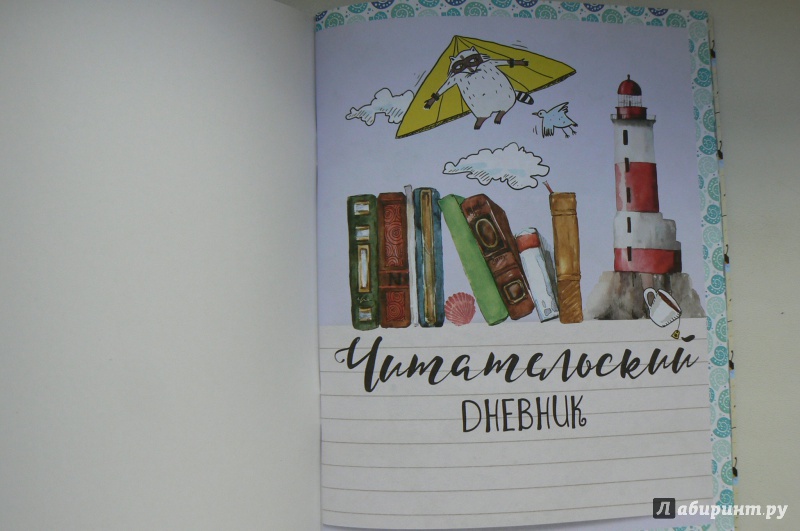 Читательский
DНЕВНИК
Лабиринт.ру